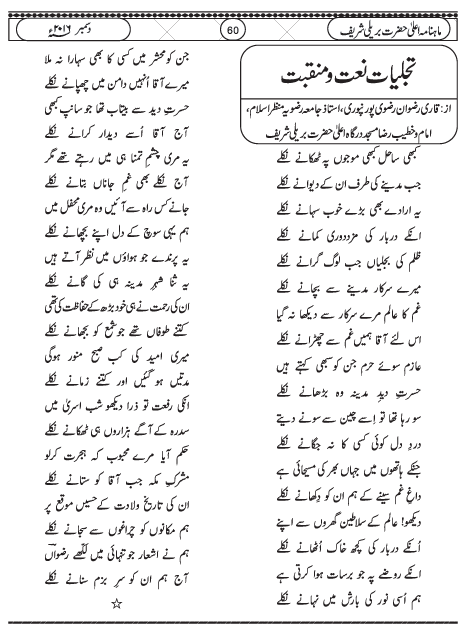 ماہنامہ اعلیٰ حضرت بریلی شریف
60
دسمبر ۲۰۱۶ء
تجلیات نعت و منقبت
از: قاری رضوان رضوی پورنپوری، استاذ جامعہ رضویہ منظر اسلام،
امام و خطیب رضا مسجد درگاہ اعلیٰ حضرت بریلی شریف
کبھی ساحل کبھی موجوں پہ ٹھکانے نکلے
جب مدینے کی طرف ان کے دیوانے نکلے
یہ ارادے بھی بڑے خوب سہانے نکلے
انکے دربار کی مزدوری کمانے نکلے
ظلم کی بجلیاں جب لوگ گرانے نکلے
میرے سرکار مدینے سے بچانے نکلے
غم کا عالم مرے سرکار سے دیکھا نہ گیا
اس لئے آقا ہمیں غم سے چھڑانے نکلے
عازم سوئے حرم جن کو سبھی کہتے ہیں
حسرت دید مدینہ وہ بڑھانے نکلے
سو رہا تھا تو اسے چین سے سونے دیتے
درد دل کوئی کسی کا نہ جگانے نکلے
جنکے ہاتھوں میں جہاں بھر کی مسیحائی ہے
داغ غم سینے کے ہم ان کو دکھانے نکلے
دیکھو! عالم کے سلاطین گھروں سے اپنے
اُنکے دربار کی کچھ خاک اُٹھانے نکلے
انکے روضے پہ جو برسات ہوا کرتی ہے
ہم اُسی نور کی بارش میں نہانے نکلے
جن کو محشر میں کسی کا بھی سہارا نہ ملا
میرے آقا اُنہیں دامن میں چھپانے نکلے
حسرت دید سے بیتاب تھا جو سانپ کبھی
آج آقا اُسے دیدار کرانے نکلے
یہ مری چشم تمنا ہی میں رہتے تھے مگر
آج نکلے بھی غم جاناں بتانے نکلے
جانے کس راہ سے آئیں وہ مری محفل میں
ہم یہی سوچ کے دل اپنے بچھانے نکلے
یہ پرندے جو ہواؤں میں نظر آتے ہیں
یہ ثنا شہر مدینہ ہی کی گانے نکلے
ان کی رحمت نے ہی خود بڑھ کے حفاظت کی تھی
کتنے طوفاں تھے جو شمع کو بجھانے نکلے
میری امید کی کب صبح منور ہوگی
مدتیں ہو گئیں اور کتنے زمانے نکلے
انکی رفعت تو ذرا دیکھو شب اسریٰ میں
سدرہ کے آگے ہزاروں ہی ٹھکانے نکلے
حکم آیا مرے محبوب کہ ہجرت کرلو
مشرک مکہ جب آقا کو ستانے نکلے
ان کی تاریخ ولادت کے حسیں موقع پر
ہم مکانوں کو چراغوں سے سجانے نکلے
ہم نے اشعار جو تنہائی میں لکھے رضواں
آج ہم ان کو سر بزم سنانے نکلے
☆